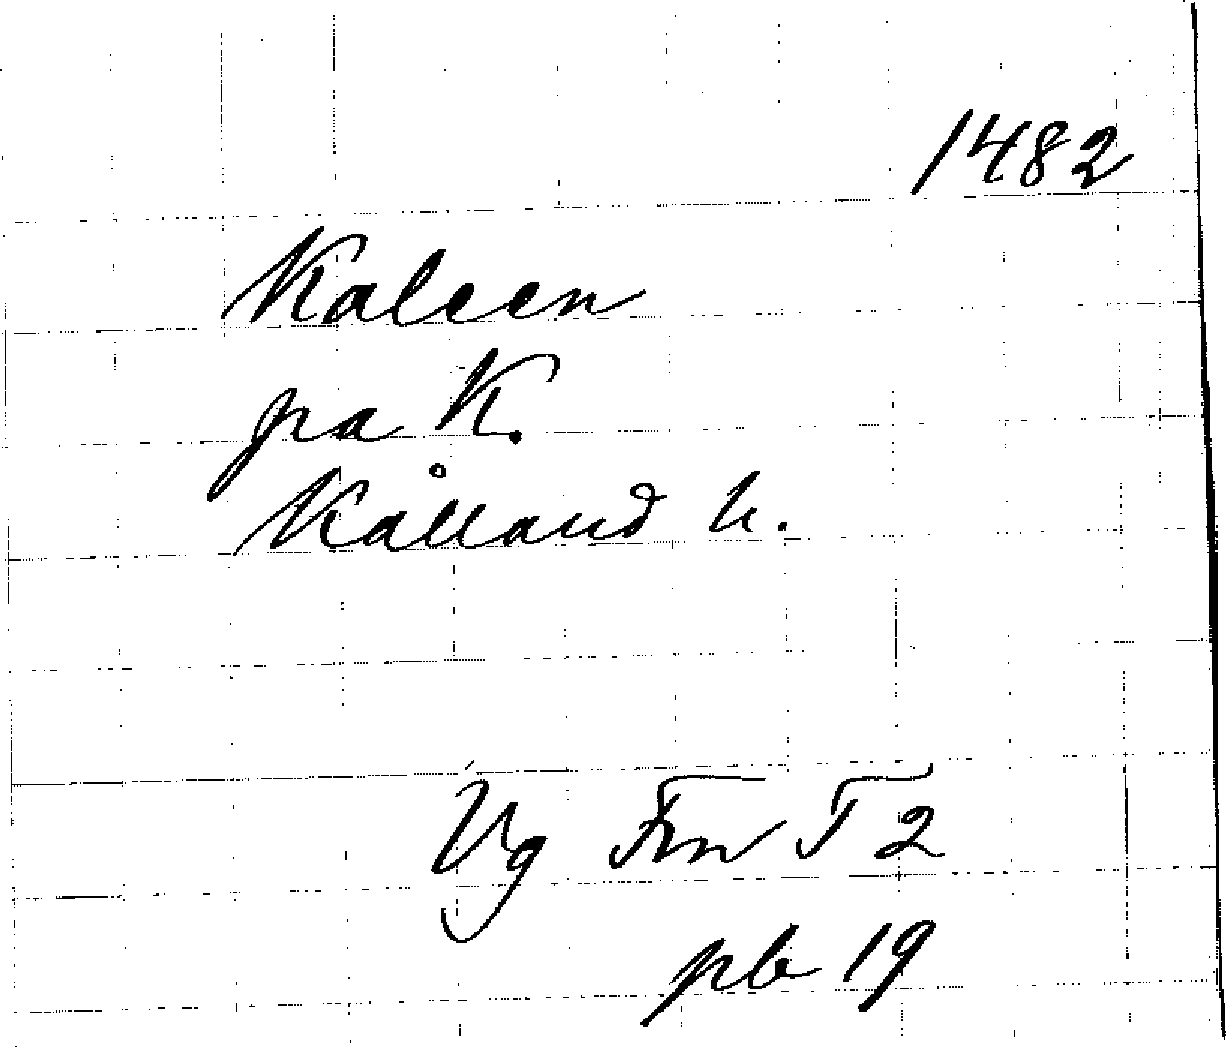 1482
Kaleen
pa K.
Kålland h.
Vg Fm T 2
pb 19